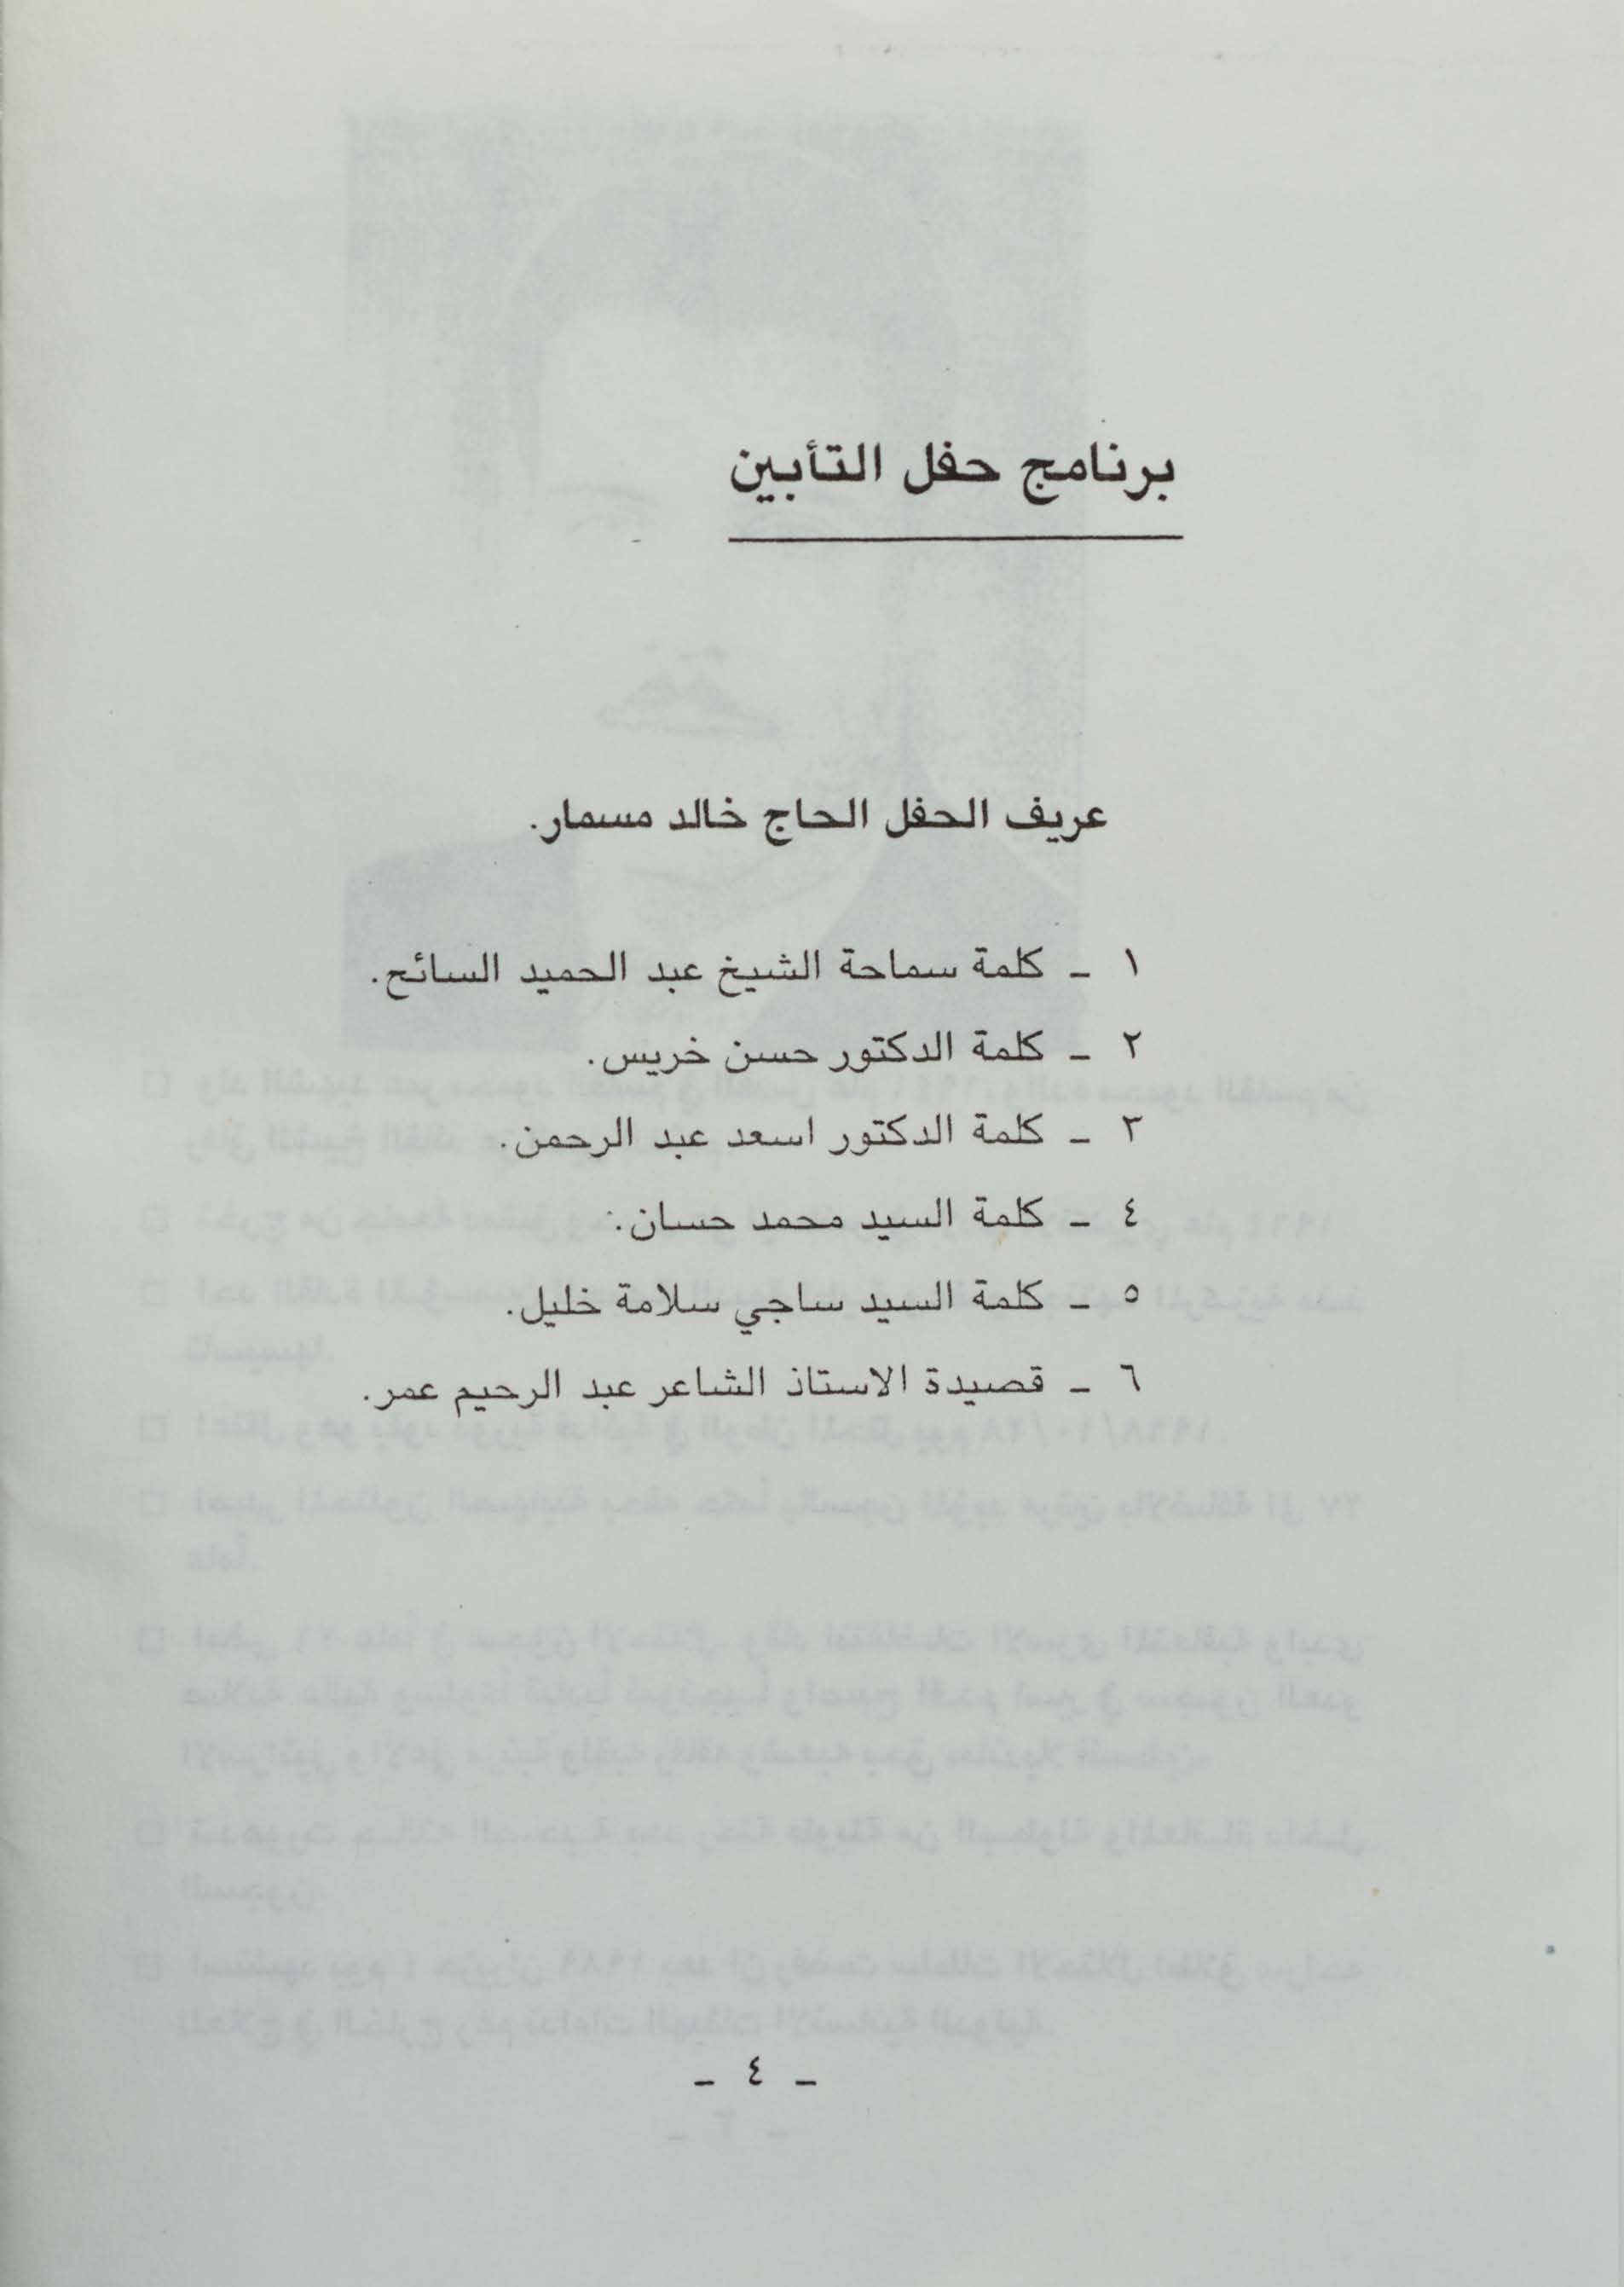 برنامج حفل التأبين
عريف الحفل الحاج خالد مسمار.
١ - كلمة سماحة الشيخ عبد الحميد السائح.
٢ - كلمة الدكتور حسن خريس.
٣ - كلمة الدكتور اسعد عبد الرحمن.
٤ - كلمة السيد محمد حسان.
٥ - كلمة السيد ساجي سلامة خليل.
٦ - قصيدة الاستاذ الشاعر عبد الرحيم عمر.
- ٤ -